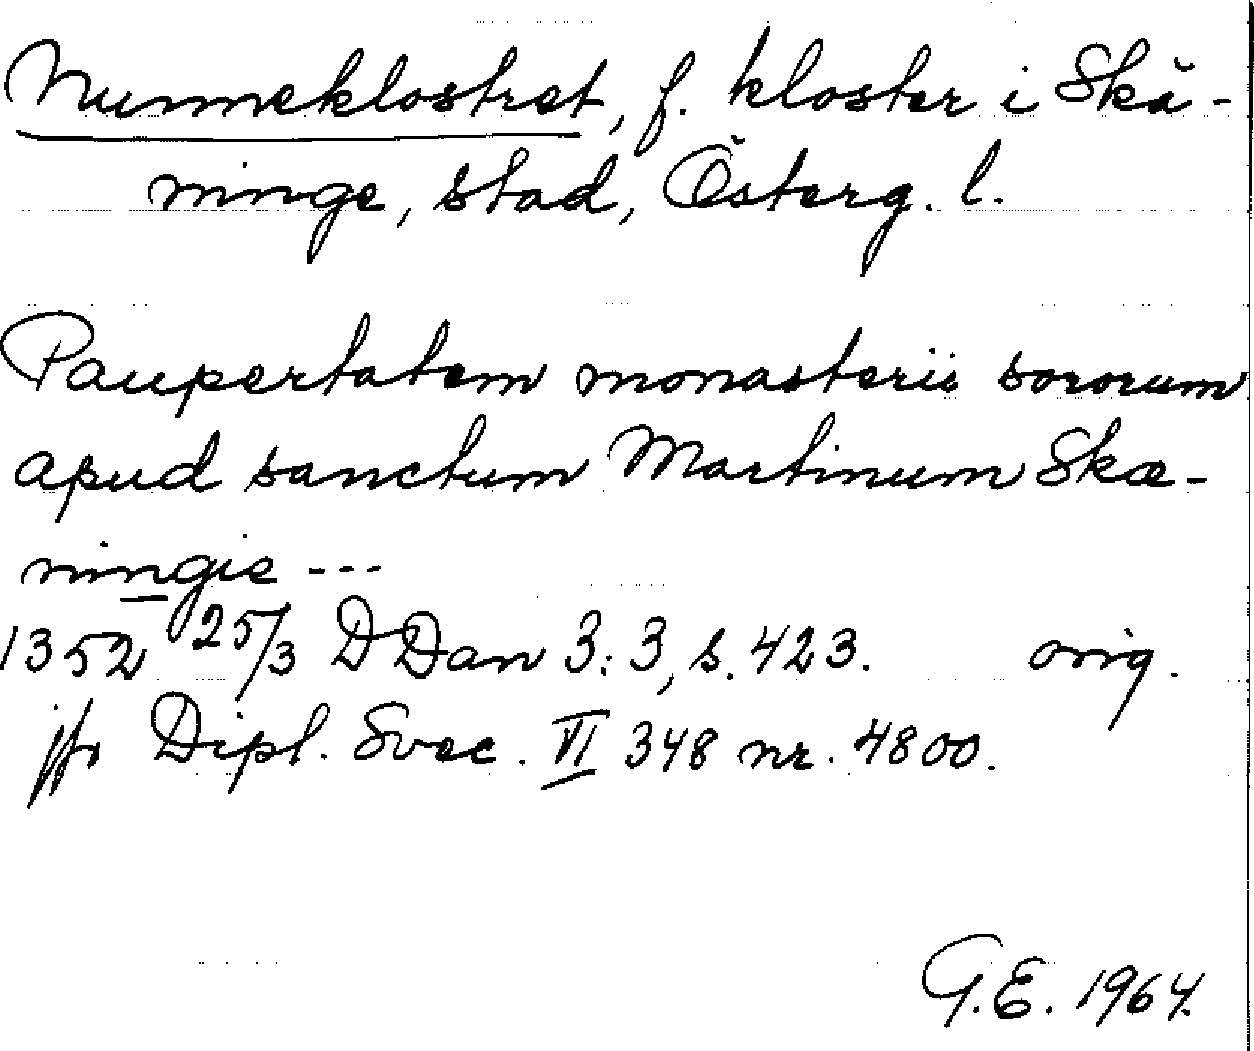 Nunneklostret, f. kloster i Skä-
ninge, stad, Österg. l.
Paupertatem monasterii sororum
apud sanctum Martinum Skæ-
ningie ---
1352 25/3 DDan 3:3, s. 423. orig.
jfr Dipl. Svec. VI 348 nr. 4800.
G.E. 1964.